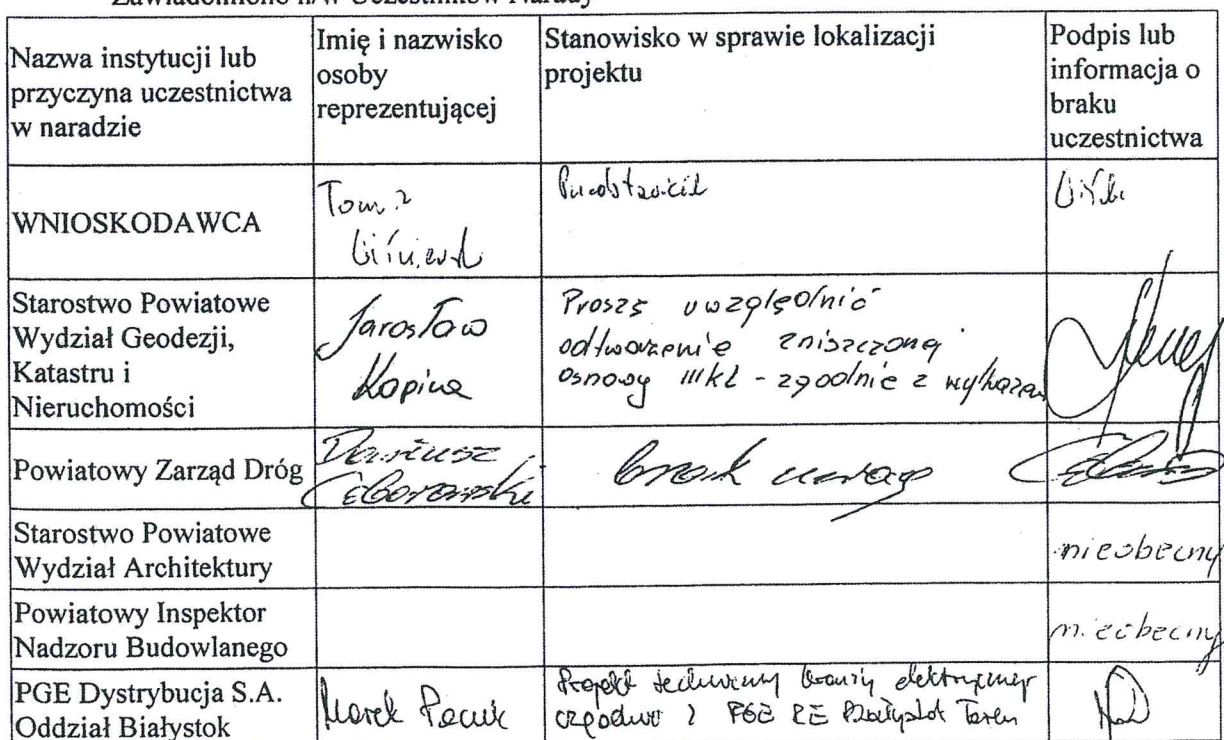 Zawiadomiono n/w Uczestników Narady
Nazwa instytucji lub
przyczyna uczestnictwa
w naradzie
Imię i nazwisko
osoby
reprezentującej
Stanowisko w sprawie lokalizacji
projektu
Podpis lub
informacja o
braku
uczestnictwa
WNIOSKODAWCA
Przedstawiciel
Starostwo Powiatowe
Wydział Geodezji,
Katastru i
Nieruchomości
Jarosław
Kopina
Proszę uwzględnić
odtworzenie zniszczonej
osnowy III kl - zgodnie z wykazem
Powiatowy Zarząd Dróg
Dariusz
Ceborowski
brak uwag
Starostwo Powiatowe
Wydział Architektury
nieobecny
Powiatowy Inspektor
Nadzoru Budowlanego
nieobecny
PGE Dystrybucja S.A.
Oddział Białystok
Marek Pacuk
Projekt techniczny branży elektrycznej
uzgodnić z PGE RE Białystok Teren